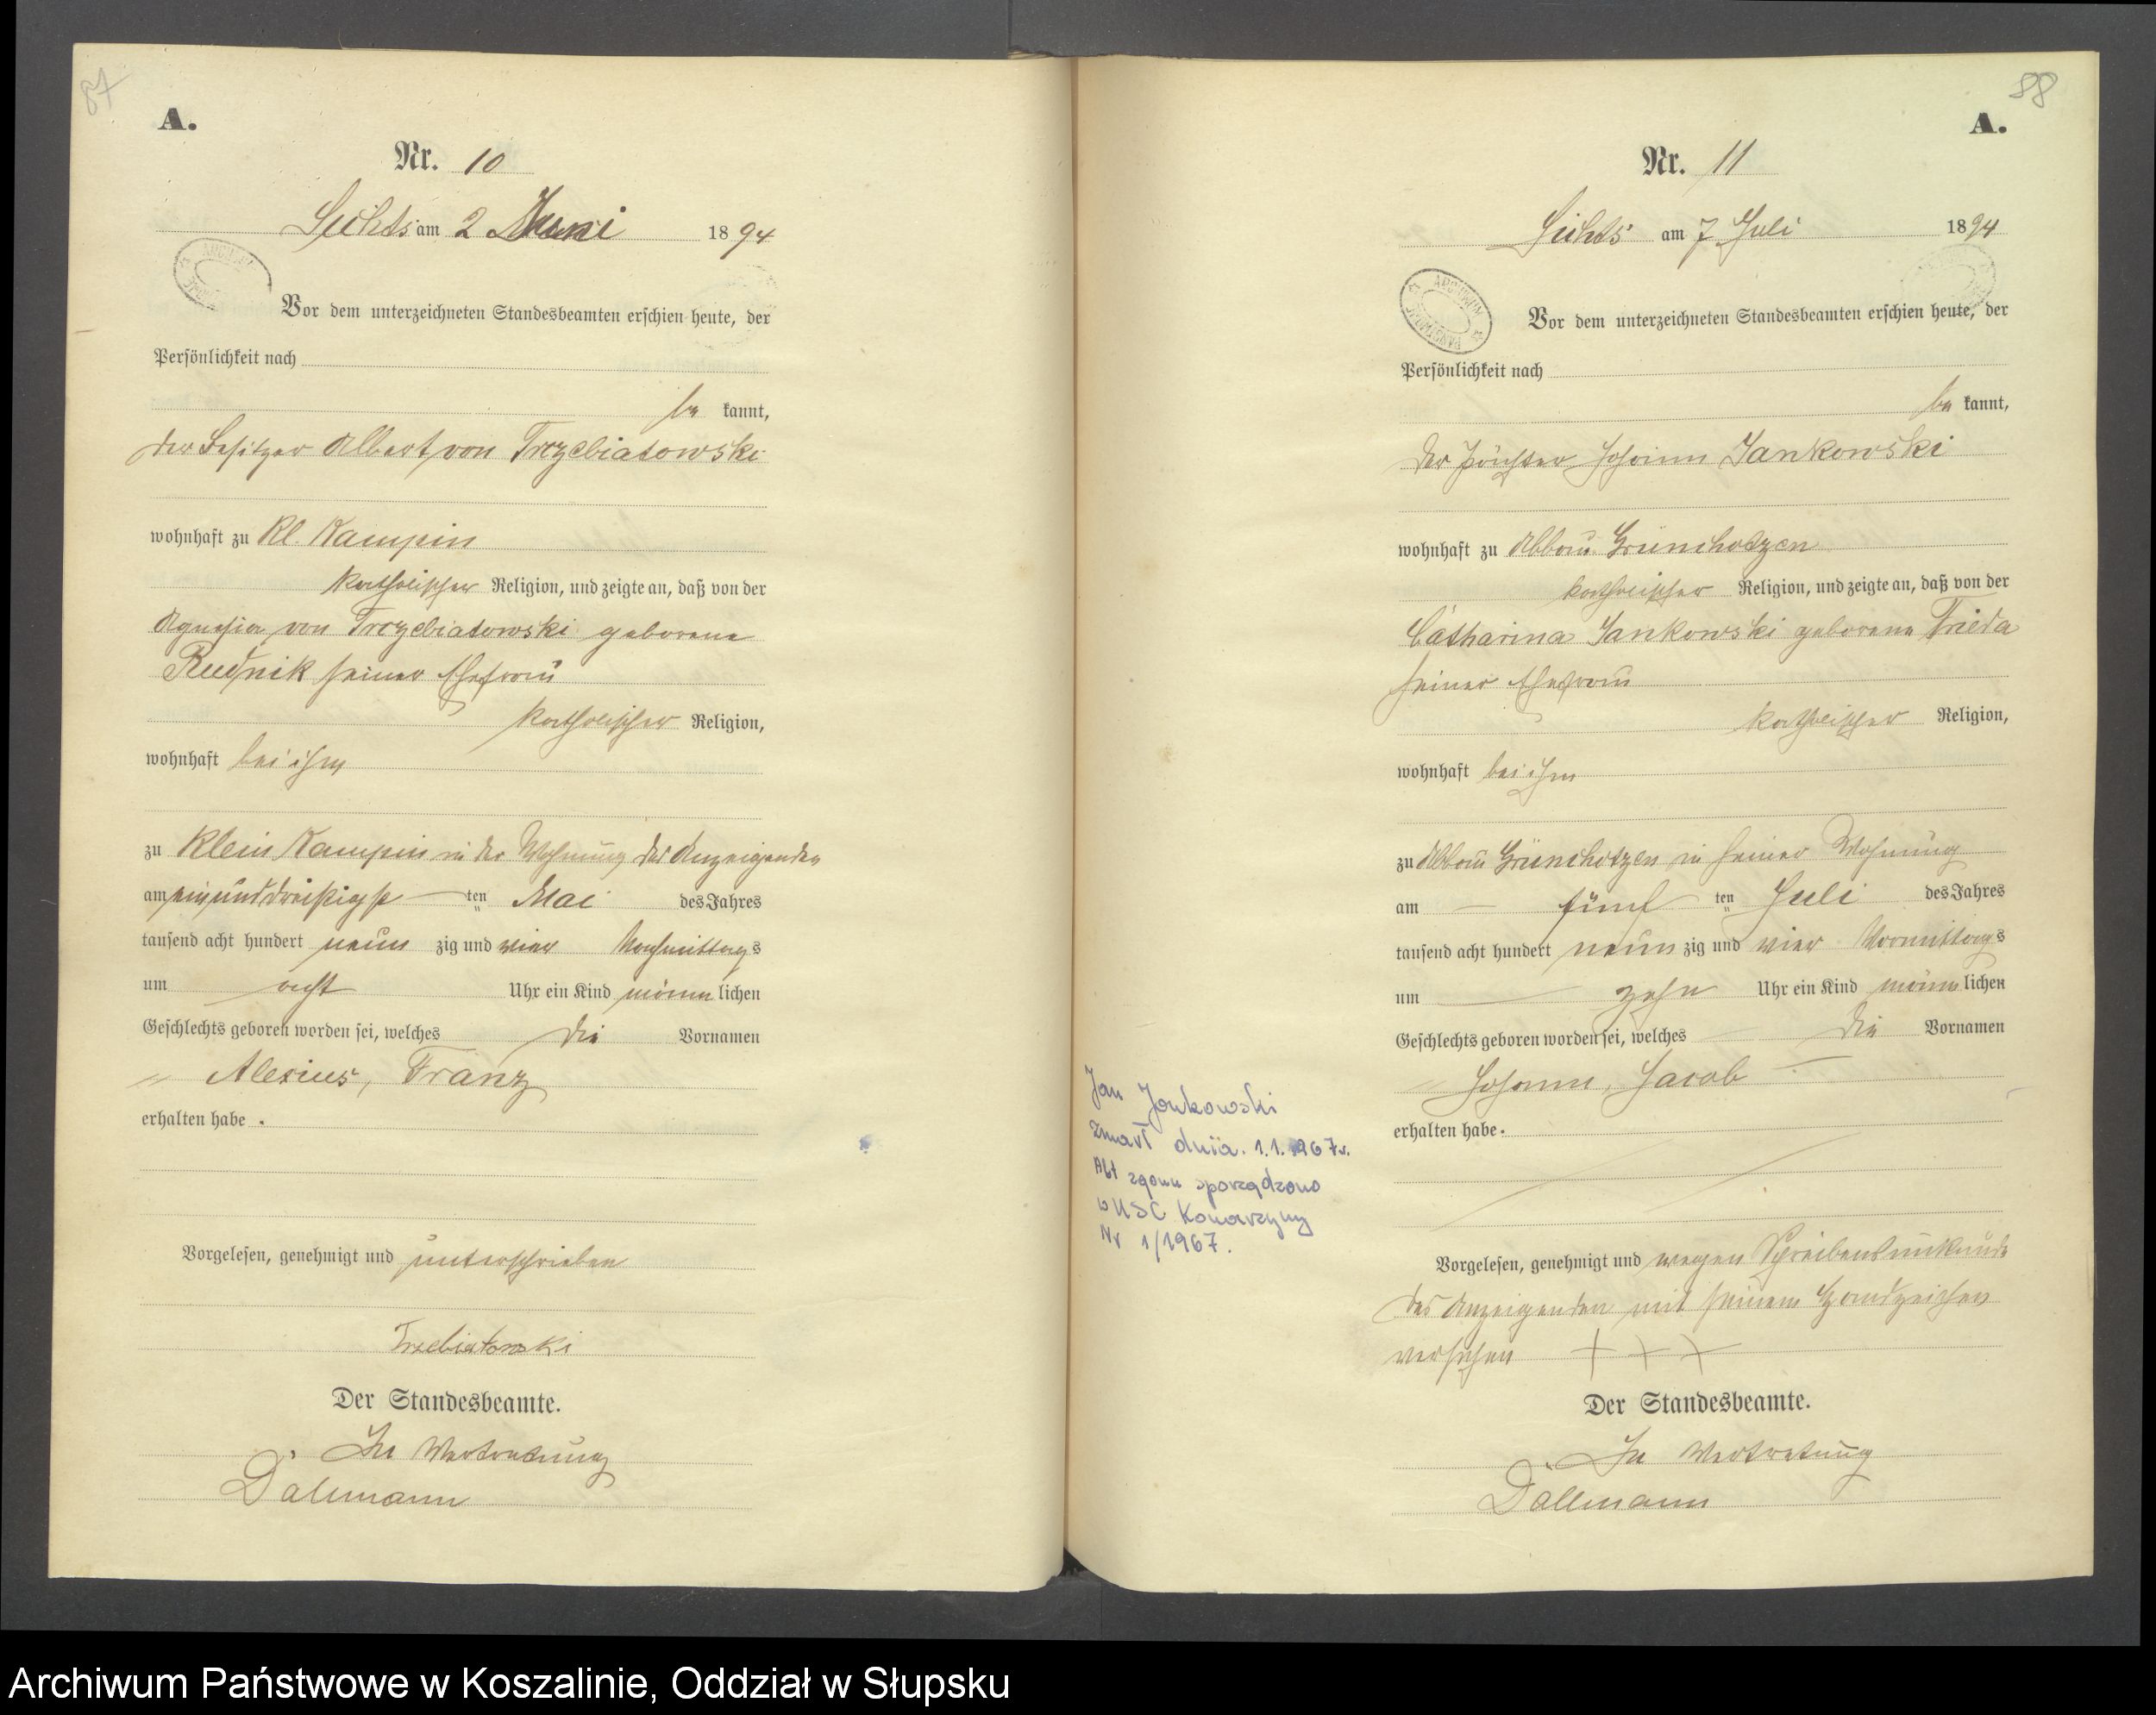 87
A.
Nr. 10
am 2 Juni 1894
Vor dem unterzeichneten Standesbeamten erschien heute, der
Persönlichkeit nach
be kannt,
der Besitzer Albert von Trzebiatowski
wohnhaft zu Kl. Kampin
katholischer Religion, und zeigte an, daß von der
von Trzebiatowski geborene
Rudnik seiner Ehefrau
katholischer Religion,
wohnhaft bei ihm
zu Klein Kampin in der Wohnung des Anzeigenden
am einunddreißigste ten Mai des Jahres
tausend acht hundert neun zig und vier Nachmittags
um acht Uhr ein Kind männ lichen
Geschlechts geboren worden sei, welches die Vornamen
Alexius, Franz
erhalten habe.
Vorgelesen, genehmigt und unterschrieben
Trzebiatowski
Der Standesbeamte.
In Vertretung
Dallmann
88
A.
Nr. 11
am 7 Juli 1894
Vor dem unterzeichneten Standesbeamten erschien heute, der
Persönlichkeit nach
be kannt,
der Pächter Johann Jankowski
wohnhaft zu Abbau Grünchotzen
katholischer Religion, und zeigte an, daß von der
Catharina Jankowski geborene Trieda
seiner Ehefrau
katholischer Religion,
wohnhaft bei ihm
zu Abbau Grünchotzen in seiner Wohnung
am fünf ten Juli des Jahres
tausend acht hundert neun zig und vier Vormittags
um zehn Uhr ein Kind männ lichen
Geschlechts geboren worden sei, welches die Vornamen
Johann, Jacob
erhalten habe.
Jan Jankowski
zmarł dnia. 1.1.1967r.
Akt zgonu sporządzono
w USC Konarzyny
Nr 1/1967.
Vorgelesen, genehmigt und wegen Schreibensunkunde
des Anzeigenden mit seinem Handzeichen
versehen + + +
Der Standesbeamte.
In Vertretung
Dallmann
Archiwum Państwowe w Koszalinie, Oddział w Słupsku